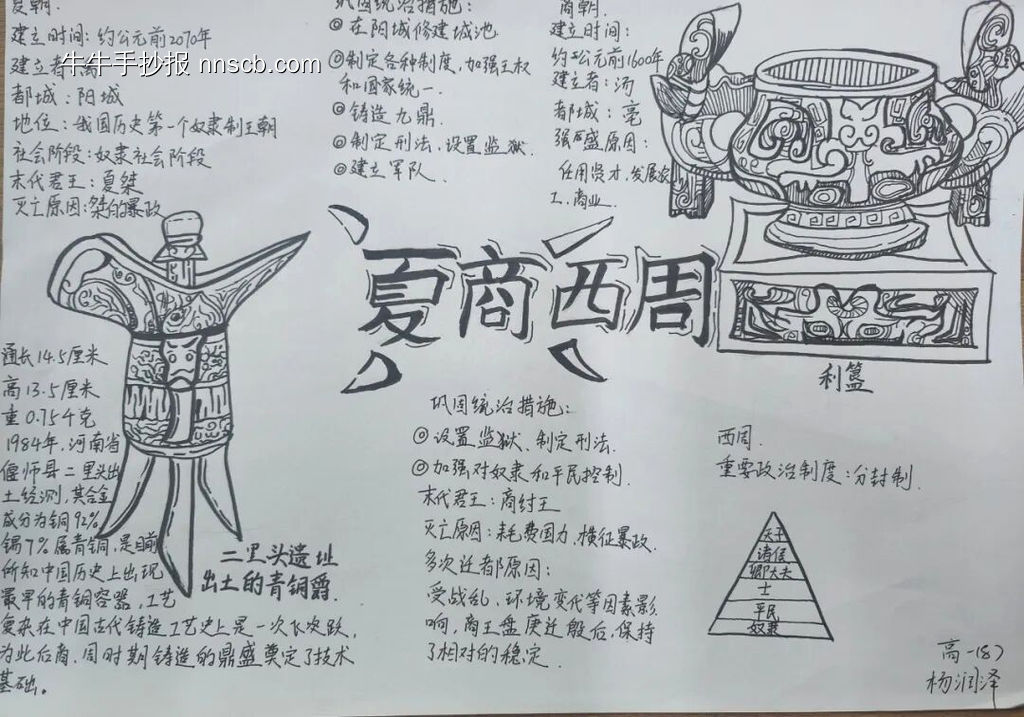 夏朝.
建立时间：约公元前2070年
建立者：禹
都城：阳城
地位：我国历史第一个奴隶制王朝
社会阶段：奴隶社会阶段
末代君王：夏桀
灭亡原因：桀的暴政
牛牛手抄报 nnscb.com
巩固统治措施：
◎在阳城修建城池
◎制定各种制度，加强王权
和国家统一.
◎铸造九鼎
◎制定刑法，设置监狱.
◎建立军队.
商朝.
建立时间：
约公元前1600年
建立者：汤
都城：亳
强盛原因：
任用贤才，发展农
工、商业.
夏商西周
利簋
通长14.5厘米
高13.5厘米
重0.754克
1984年，河南省
偃师县二里头出
土经测，其合金
成分为铜92%
锡7%属青铜，是目前
所知中国历史上出现
最早的青铜容器，工艺
复杂在中国古代铸造工艺史上是一次飞跃，
为此后商、周时期铸造的鼎盛奠定了技术
基础。
二里头遗址
出土的青铜爵.
巩固统治措施：
◎设置监狱、制定刑法.
◎加强对奴隶和平民控制.
末代君王：商纣王
灭亡原因：耗费国力，横征暴政.
多次迁都原因：
受战乱、环境变代等因素影
响，商王盘庚迁殷后，保持
了相对的稳定.
西周.
重要政治制度：分封制.
天子
诸侯
卿大夫
士
平民
奴隶
高一(8)
杨润泽